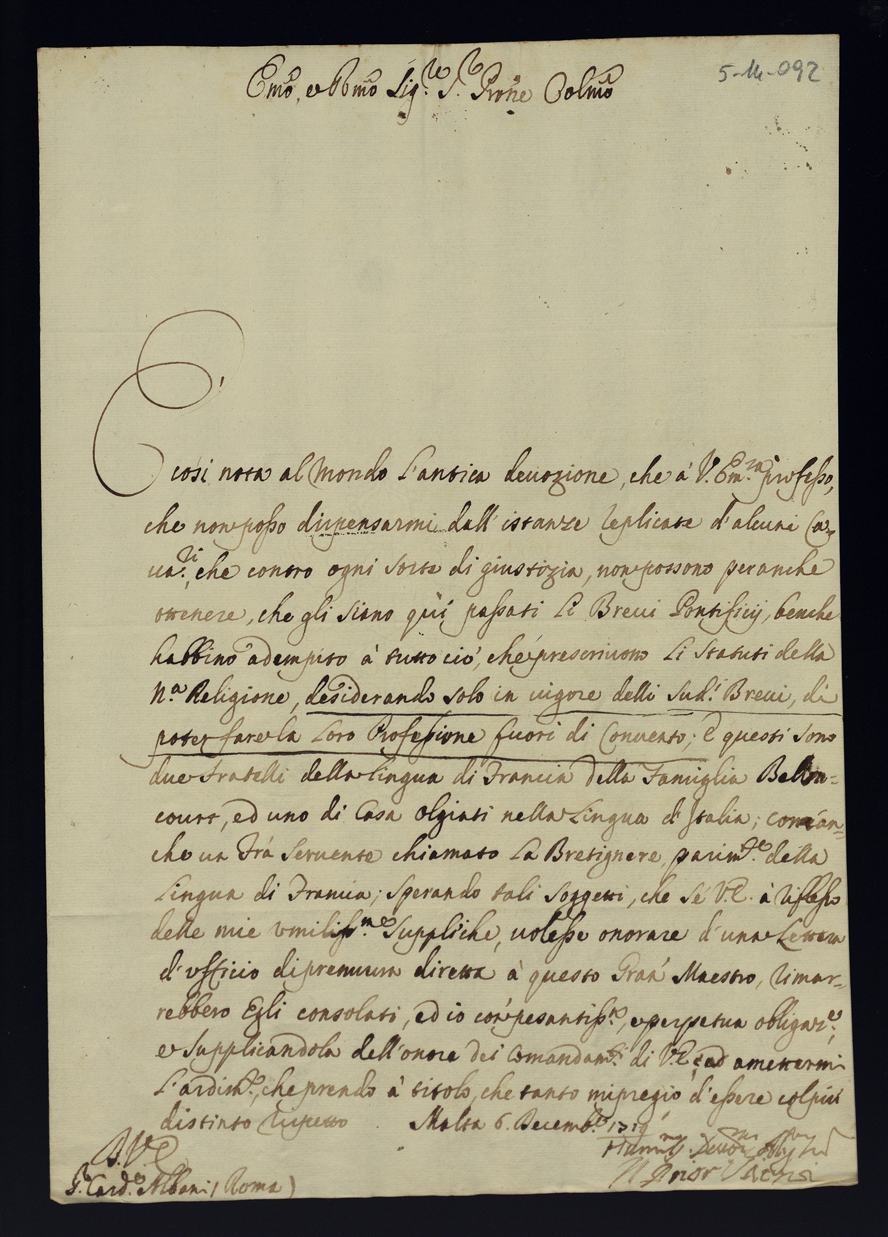 5-14-092
Emo, e Rmo Sig.re S.r Prone Colmo
È così nota al Mondo l'antica deuozione, che à V. Em.za professo,
che non posso dispensarmi dall'istanze replicate d'alcuni Ca-
ua.ri, che contro ogni sorte di giustizia, non possono per anche
ottenere, che gli siano quì passati li Breui Pontificij, benche
habbino adempito à tutto ciò, che prescriuono li Statuti della
N.a Religione, desiderando solo in uigore delli sud.i Breui, di
poter fare la loro Professione fuori di Conuento; E questi sono
due Fratelli della Lingua di Francia della Famiglia Beton-
court, ed uno di Casa Olgiati nella Lingua d'Italia; com'an-
che un Frà Seruente chiamato La Bretignere parim.te della
Lingua di Francia; sperando tali soggetti, che sé V.E. à riflesso
delle mie vmiliss.me Suppliche, uolesse onorare d'una Lettera
d'vfficio di premura diretta à questo Gran Maestro, rimar-
rebbero Egli consolati, ed io con pesantiss.a, e perpetua obligaz.e,
e Supplicandola dell'onore dei Comandam.ti di V.E., ed amettermi
l'ardim.to, che prendo à titolo, che tanto mi pregio d'essere col più
distinto rispetto Malta 6. Decemb.e 1719
D. V.E.
S.r Card.e Albani (Roma)
Humil.mo Deuot.mo Oblig.mo Ser.
Il Prior